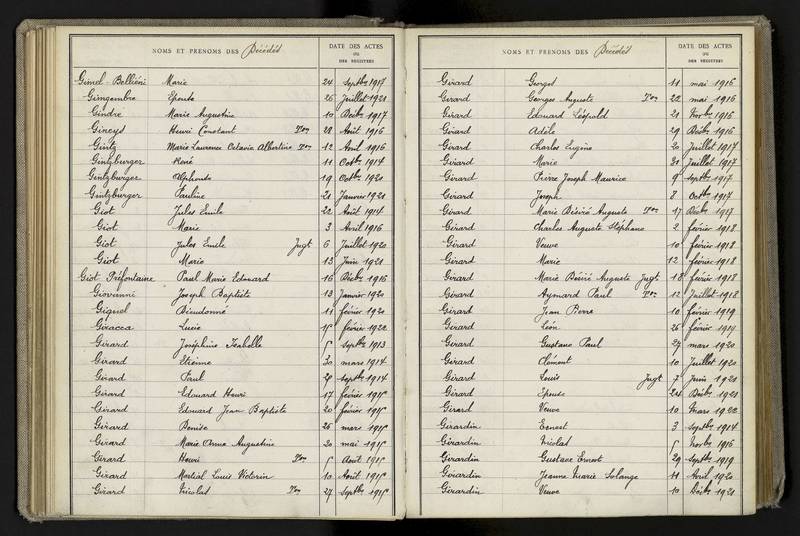 NOMS ET PRENOMS DES Décédés DATE DES ACTES OU DES REGISTRES
Gimel-Belliéni Marie 24 Septbre 1917
Gingembre Epouse 26 Juillet 1921
Gindre Marie Augustine 10 Décbre 1917
Gineys Henri Constant Ton 28 Août 1916
Gintz Marie Laurence Octavie Albertine Ton 12 Avril 1916
Gintzburger René 11 Octbre 1914
Gintzburger Alphonse 19 Octbre 1920
Gintzburger Pauline 21 Janvier 1921
Giot Jules Emile 22 Août 1914
Giot Marie 3 Avril 1916
Giot Jules Emile Jugt 6 Juillet 1920
Giot Marie 13 Juin 1921
Giot Préfontaine Paul Marie Edouard 16 Décbre 1916
Giovanni Joseph Baptiste 13 Janvier 1920
Gignel Dieudonné 11 février 1921
Giracca Lucie 15 février 1922
Girard Joséphine Isabelle 5 septbre 1913
Girard Etienne 30 mars 1914
Girard Paul 29 septbre 1914
Girard Edouard Henri 17 février 1915
Girard Edouard Jean Baptiste 20 février 1915
Girard Denise 26 mars 1915
Girard Marie Anne Augustine 20 mai 1915
Girard Henri Ton 5 Août 1915
Girard Martial Louis Victorin 10 Août 1915
Girard Nicolas Ton 27 Septbre 1915
NOMS ET PRENOMS DES Décédés DATE DES ACTES OU DES REGISTRES
Girard Georges 11 mai 1916
Girard Georges Auguste Ton 22 mai 1916
Girard Edouard Léopold 21 Novbre 1916
Girard Adèle 29 Décbre 1916
Girard Charles Eugène 20 Juillet 1917
Girard Marie 31 Juillet 1917
Girard Pierre Joseph Maurice 9 septbre 1917
Girard Joseph 8 Octbre 1917
Girard Marie Désiré Auguste Ton 17 Décbre 1917
Girard Charles Auguste Stéphane 2 février 1918
Girard Veuve 10 février 1918
Girard Marie 12 février 1918
Girard Marie Désiré Auguste Jugt 18 février 1918
Girard Aymard Paul Ton 12 Juillet 1918
Girard Jean Pierre 10 février 1919
Girard Léon 26 février 1919
Girard Gustave Paul 27 mars 1920
Girard Clément 10 Juillet 1920
Girard Louis Jugt 7 Juin 1921
Girard Epouse 24 Décbre 1921
Girard Veuve 10 Mars 1922
Girardin Ernest 3 Septbre 1914
Girardin Nicolas 5 Novbre 1916
Girardin Gustave Ernest 29 Septbre 1919
Girardin Jeanne Marie Solange 11 Avril 1920
Girardin Veuve 10 Décbre 1921